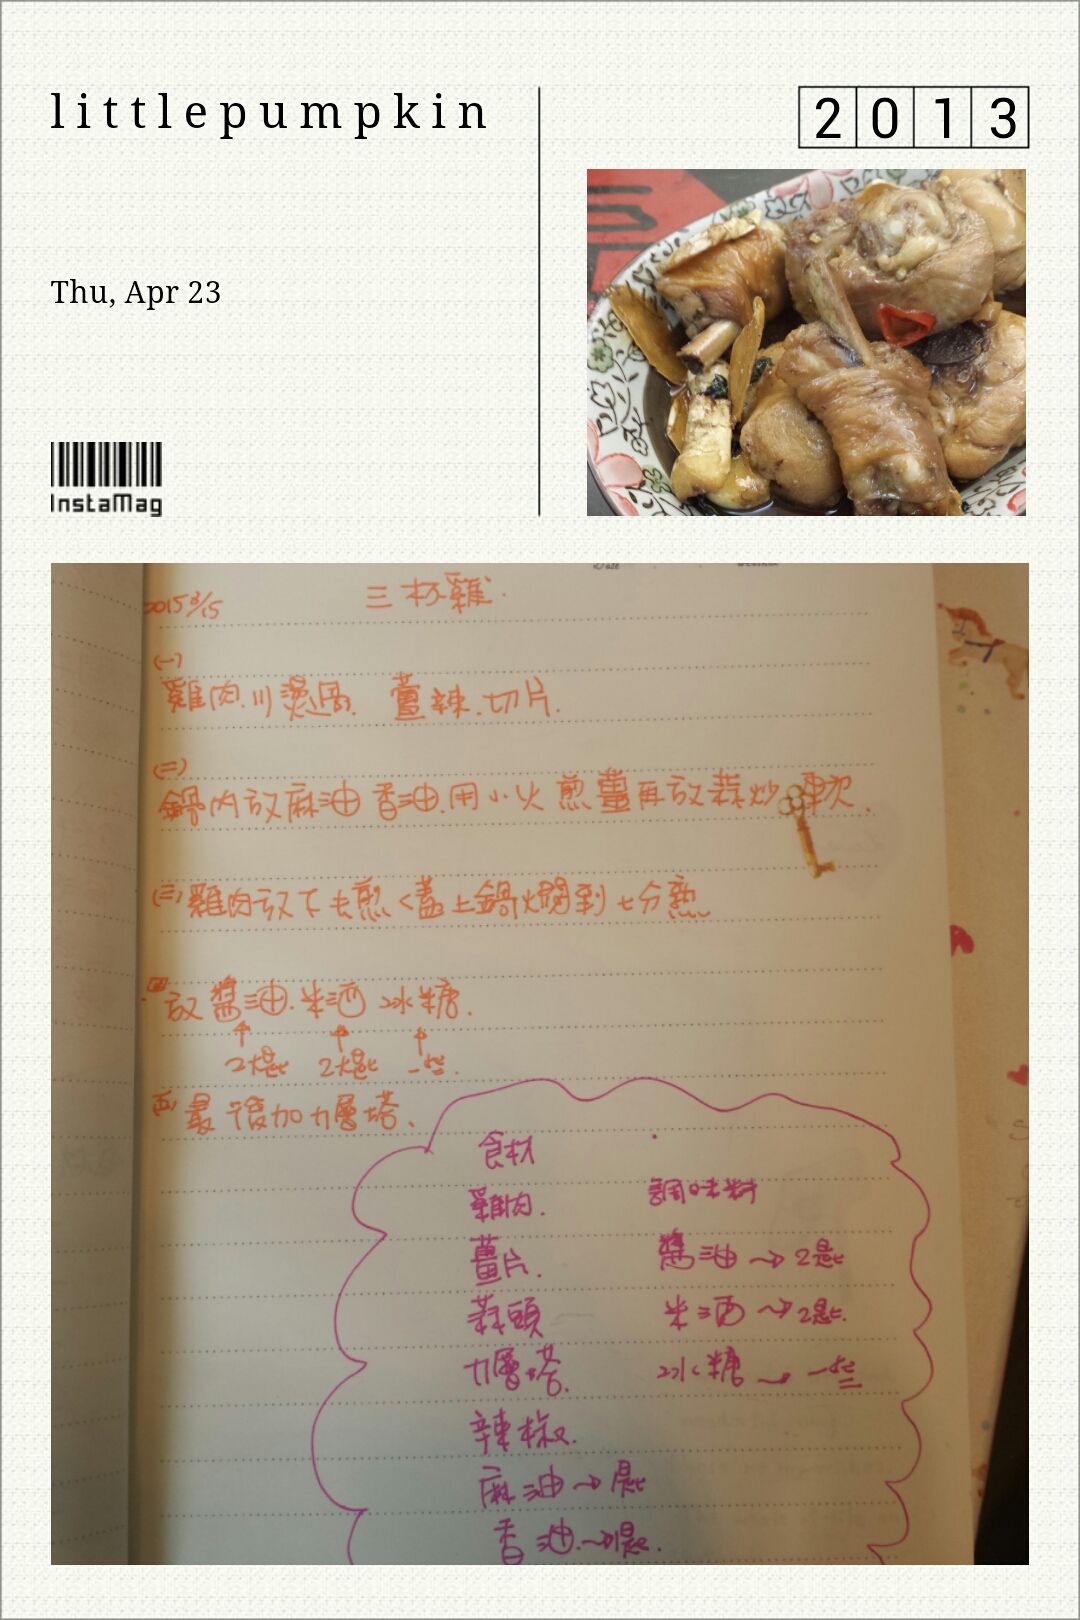 littlepumpkin
2013
Thu, Apr 23
InstaMag
Date
2015 3/15
三杯雞.
(一)
雞肉.川燙過. 薑辣.切片.
(二)
鍋內放麻油 香油.用小火 煎薑再放蒜炒 軟.
(三)雞肉放下去煎く蓋上鍋燜到七分熟
四 放醬油.米酒 冰糖.
2大匙 2大匙 一些.
五) 最後加九層塔.
食材
調味料
雞肉.
薑片.
醬油→2匙
蒜頭
米酒→2匙.
九層塔.
冰糖→一些
辣椒.
麻油→1匙
香油.→1匙.